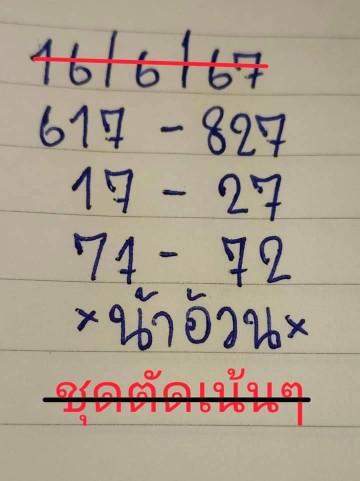 16/6/67
617 - 827
17 - 27
71 - 72
×น้าอ้วน×
ชุดตัดเน้นๆ